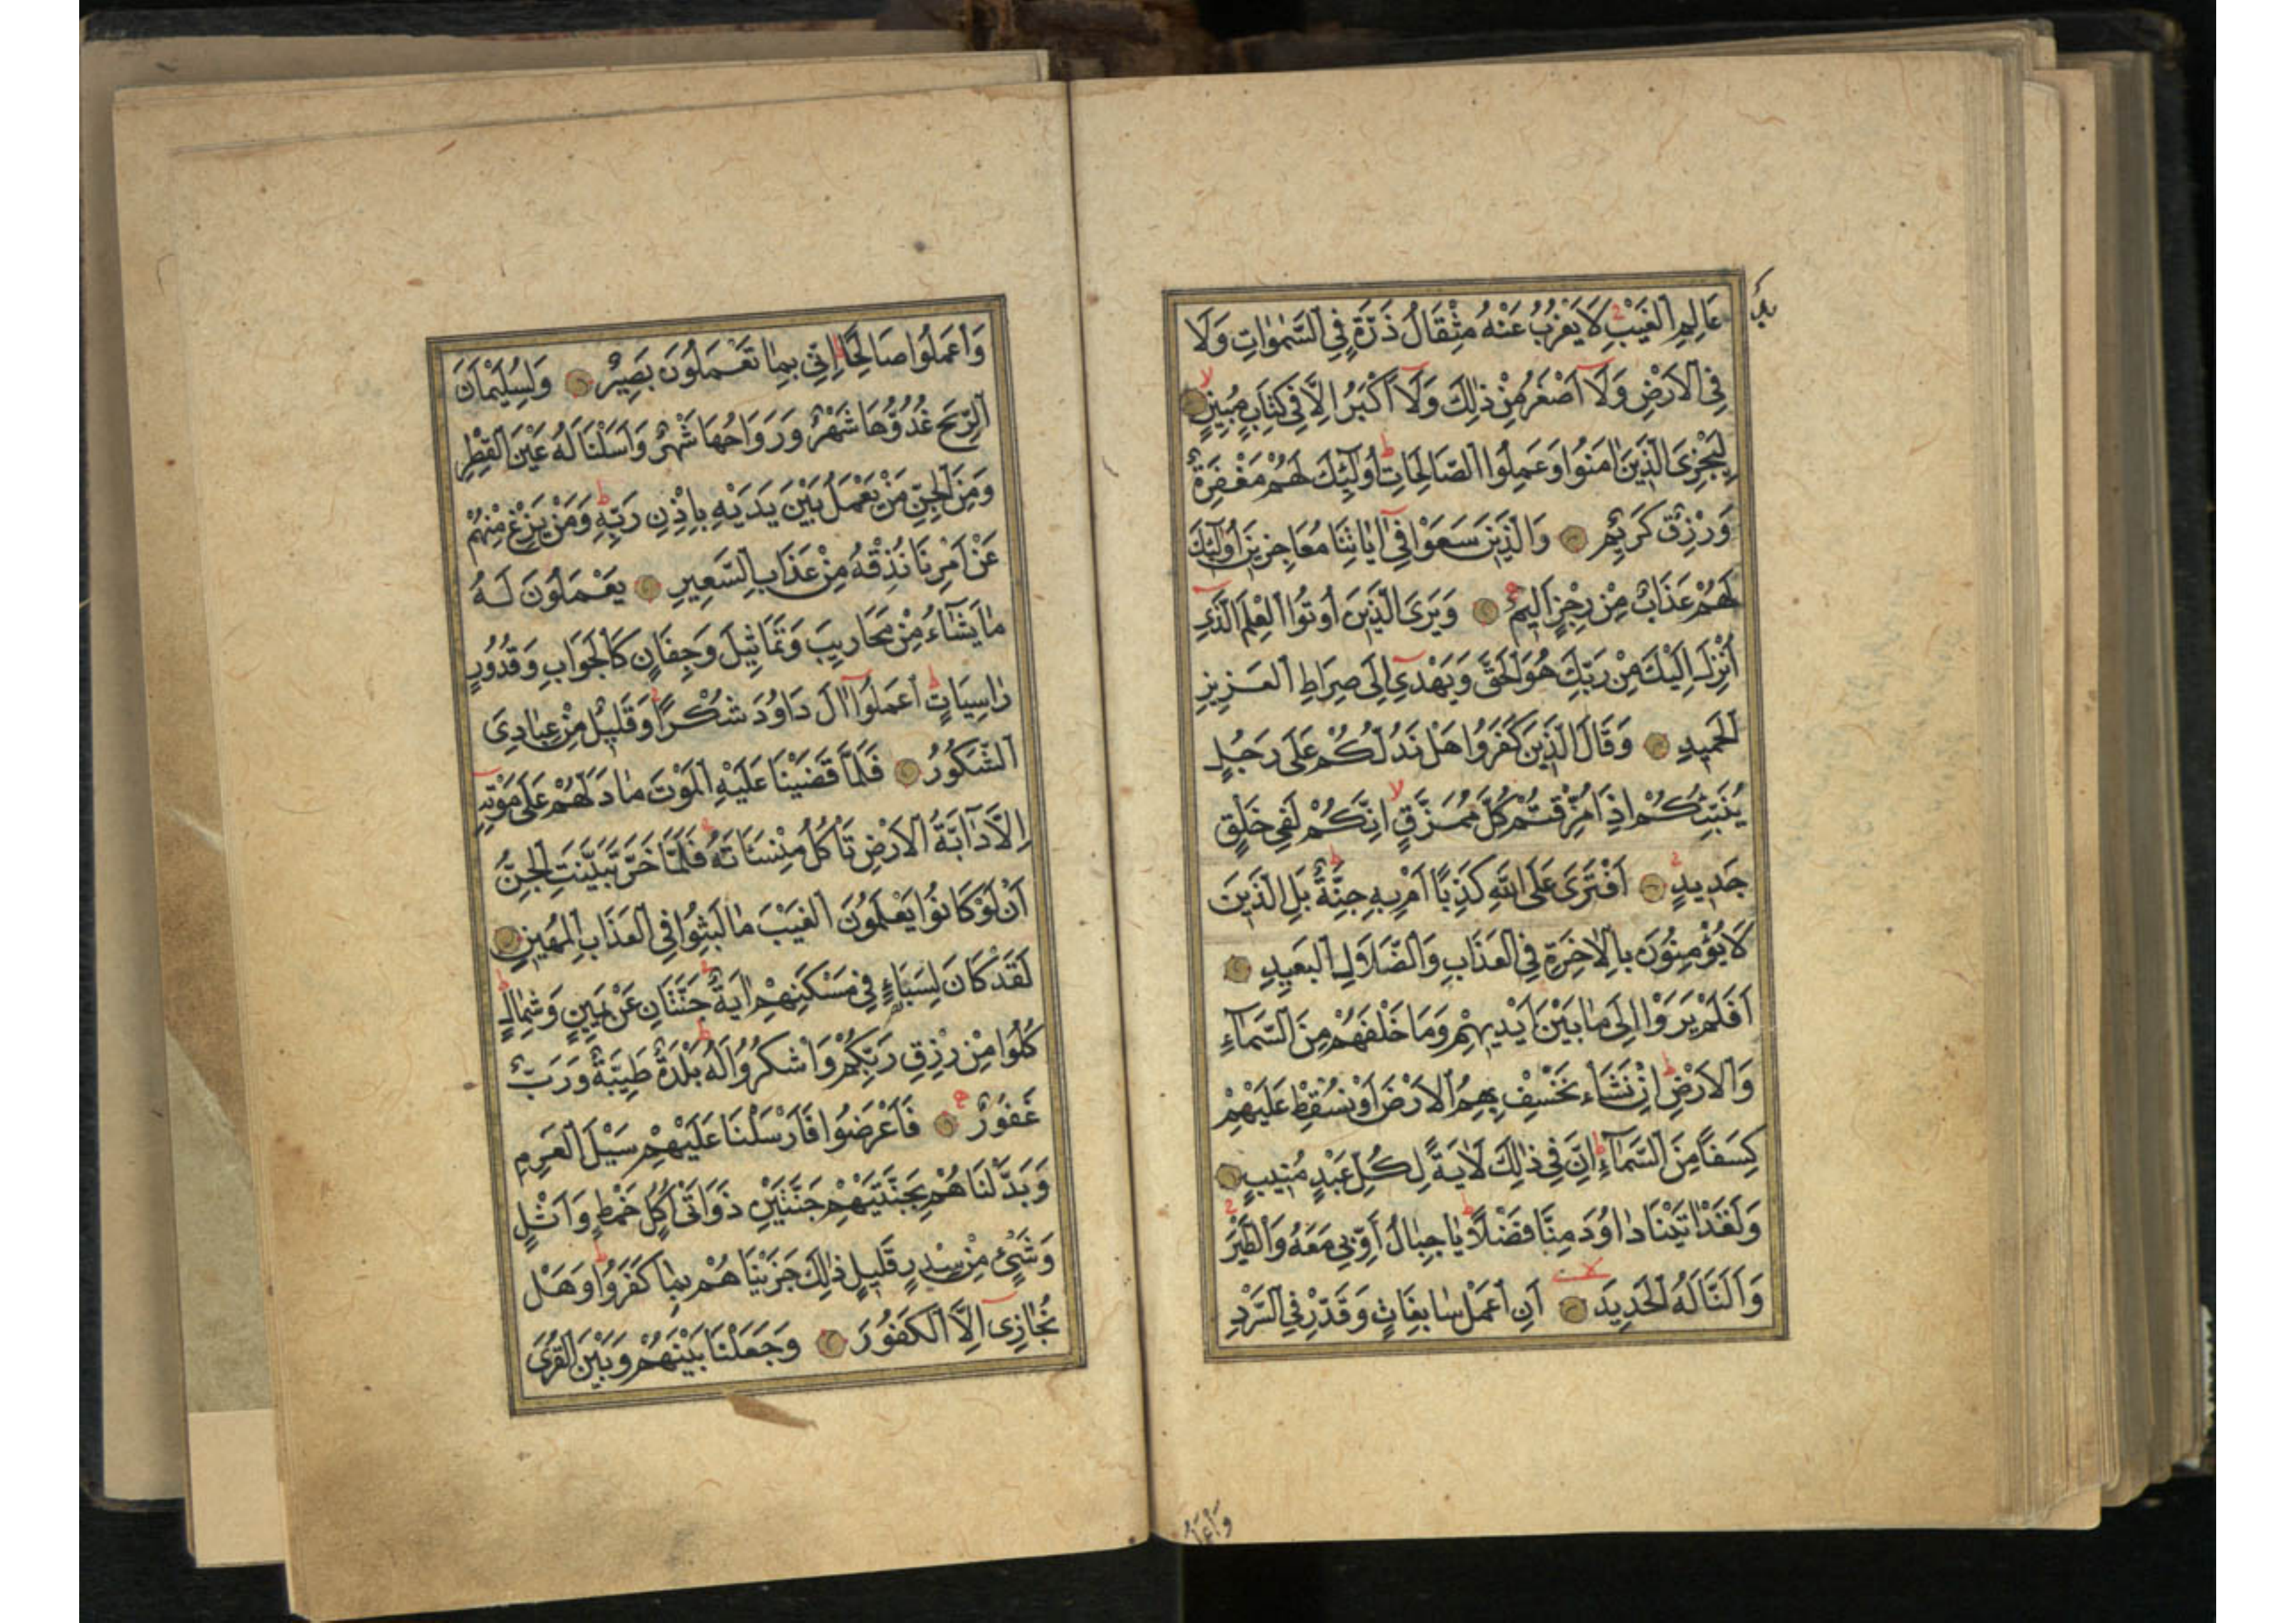 عَالِمِ الْغَيْبِ لَا يَعْزُبُ عَنْهُ مِثْقَالُ ذَرَّةٍ فِي السَّمٰوَاتِ وَلَا
فِي الْاَرْضِ وَلَآ اَصْغَرُ مِنْ ذٰلِكَ وَلَآ اَكْبَرُ اِلَّا فِي كِتَابٍ مُبِينٍ
لِيَجْزِيَ الَّذِينَ اٰمَنُوا وَعَمِلُوا الصَّالِحَاتِ اُولٰٓئِكَ لَهُمْ مَغْفِرَةٌ
وَرِزْقٌ كَرِيمٌ وَالَّذِينَ سَعَوْا فِيٓ اٰيَاتِنَا مُعَاجِزِينَ اُولٰٓئِكَ
لَهُمْ عَذَابٌ مِنْ رِجْزٍ اَلِيمٌ وَيَرَى الَّذِينَ اُوتُوا الْعِلْمَ الَّذِيٓ
اُنْزِلَ اِلَيْكَ مِنْ رَبِّكَ هُوَ الْحَقَّ وَيَهْدِيٓ اِلٰى صِرَاطِ الْعَزِيزِ
الْحَمِيدِ وَقَالَ الَّذِينَ كَفَرُوا هَلْ نَدُلُّكُمْ عَلٰى رَجُلٍ
يُنَبِّئُكُمْ اِذَا مُزِّقْتُمْ كُلَّ مُمَزَّقٍ اِنَّكُمْ لَفِي خَلْقٍ
جَدِيدٍ اَفْتَرٰى عَلَى اللّٰهِ كَذِبًا اَمْ بِهِ جِنَّةٌ بَلِ الَّذِينَ
لَا يُؤْمِنُونَ بِالْاٰخِرَةِ فِي الْعَذَابِ وَالضَّلَالِ الْبَعِيدِ
اَفَلَمْ يَرَوْا اِلٰى مَا بَيْنَ اَيْدِيهِمْ وَمَا خَلْفَهُمْ مِنَ السَّمَآءِ
وَالْاَرْضِ اِنْ نَشَأْ نَخْسِفْ بِهِمُ الْاَرْضَ اَوْ نُسْقِطْ عَلَيْهِمْ
كِسَفًا مِنَ السَّمَآءِ اِنَّ فِي ذٰلِكَ لَاٰيَةً لِكُلِّ عَبْدٍ مُنِيبٍ
وَلَقَدْ اٰتَيْنَا دَاوُدَ مِنَّا فَضْلًا يَا جِبَالُ اَوِّبِي مَعَهُ وَالطَّيْرَ
وَاَلَنَّا لَهُ الْحَدِيدَ اَنِ اعْمَلْ سَابِغَاتٍ وَقَدِّرْ فِي السَّرْدِ
وَاعْمَلُوا
وَاعْمَلُوا صَالِحًا اِنِّي بِمَا تَعْمَلُونَ بَصِيرٌ وَلِسُلَيْمٰنَ
الرِّيحَ غُدُوُّهَا شَهْرٌ وَرَوَاحُهَا شَهْرٌ وَاَسَلْنَا لَهُ عَيْنَ الْقِطْرِ
وَمِنَ الْجِنِّ مَنْ يَعْمَلُ بَيْنَ يَدَيْهِ بِاِذْنِ رَبِّهِ وَمَنْ يَزِغْ مِنْهُمْ
عَنْ اَمْرِنَا نُذِقْهُ مِنْ عَذَابِ السَّعِيرِ يَعْمَلُونَ لَهُ
مَا يَشَآءُ مِنْ مَحَارِيبَ وَتَمَاثِيلَ وَجِفَانٍ كَالْجَوَابِ وَقُدُورٍ
رَاسِيَاتٍ اِعْمَلُوٓا اٰلَ دَاوُدَ شُكْرًا وَقَلِيلٌ مِنْ عِبَادِيَ
الشَّكُورُ فَلَمَّا قَضَيْنَا عَلَيْهِ الْمَوْتَ مَا دَلَّهُمْ عَلٰى مَوْتِهِٓ
اِلَّا دَآبَّةُ الْاَرْضِ تَاْكُلُ مِنْسَاَتَهُ فَلَمَّا خَرَّ تَبَيَّنَتِ الْجِنُّ
اَنْ لَوْ كَانُوا يَعْلَمُونَ الْغَيْبَ مَا لَبِثُوا فِي الْعَذَابِ الْمُهِينِ
لَقَدْ كَانَ لِسَبَاءٍ فِي مَسْكَنِهِمْ اٰيَةٌ جَنَّتَانِ عَنْ يَمِينٍ وَشِمَالٍ
كُلُوا مِنْ رِزْقِ رَبِّكُمْ وَاشْكُرُوا لَهُ بَلْدَةٌ طَيِّبَةٌ وَرَبٌّ
غَفُورٌ فَاَعْرَضُوا فَاَرْسَلْنَا عَلَيْهِمْ سَيْلَ الْعَرِمِ
وَبَدَّلْنَاهُمْ بِجَنَّتَيْهِمْ جَنَّتَيْنِ ذَوَاتَيْ اُكُلٍ خَمْطٍ وَاَثْلٍ
وَشَيْءٍ مِنْ سِدْرٍ قَلِيلٍ ذٰلِكَ جَزَيْنَاهُمْ بِمَا كَفَرُوا وَهَلْ
نُجَازِيٓ اِلَّا الْكَفُورَ وَجَعَلْنَا بَيْنَهُمْ وَبَيْنَ الْقُرَى